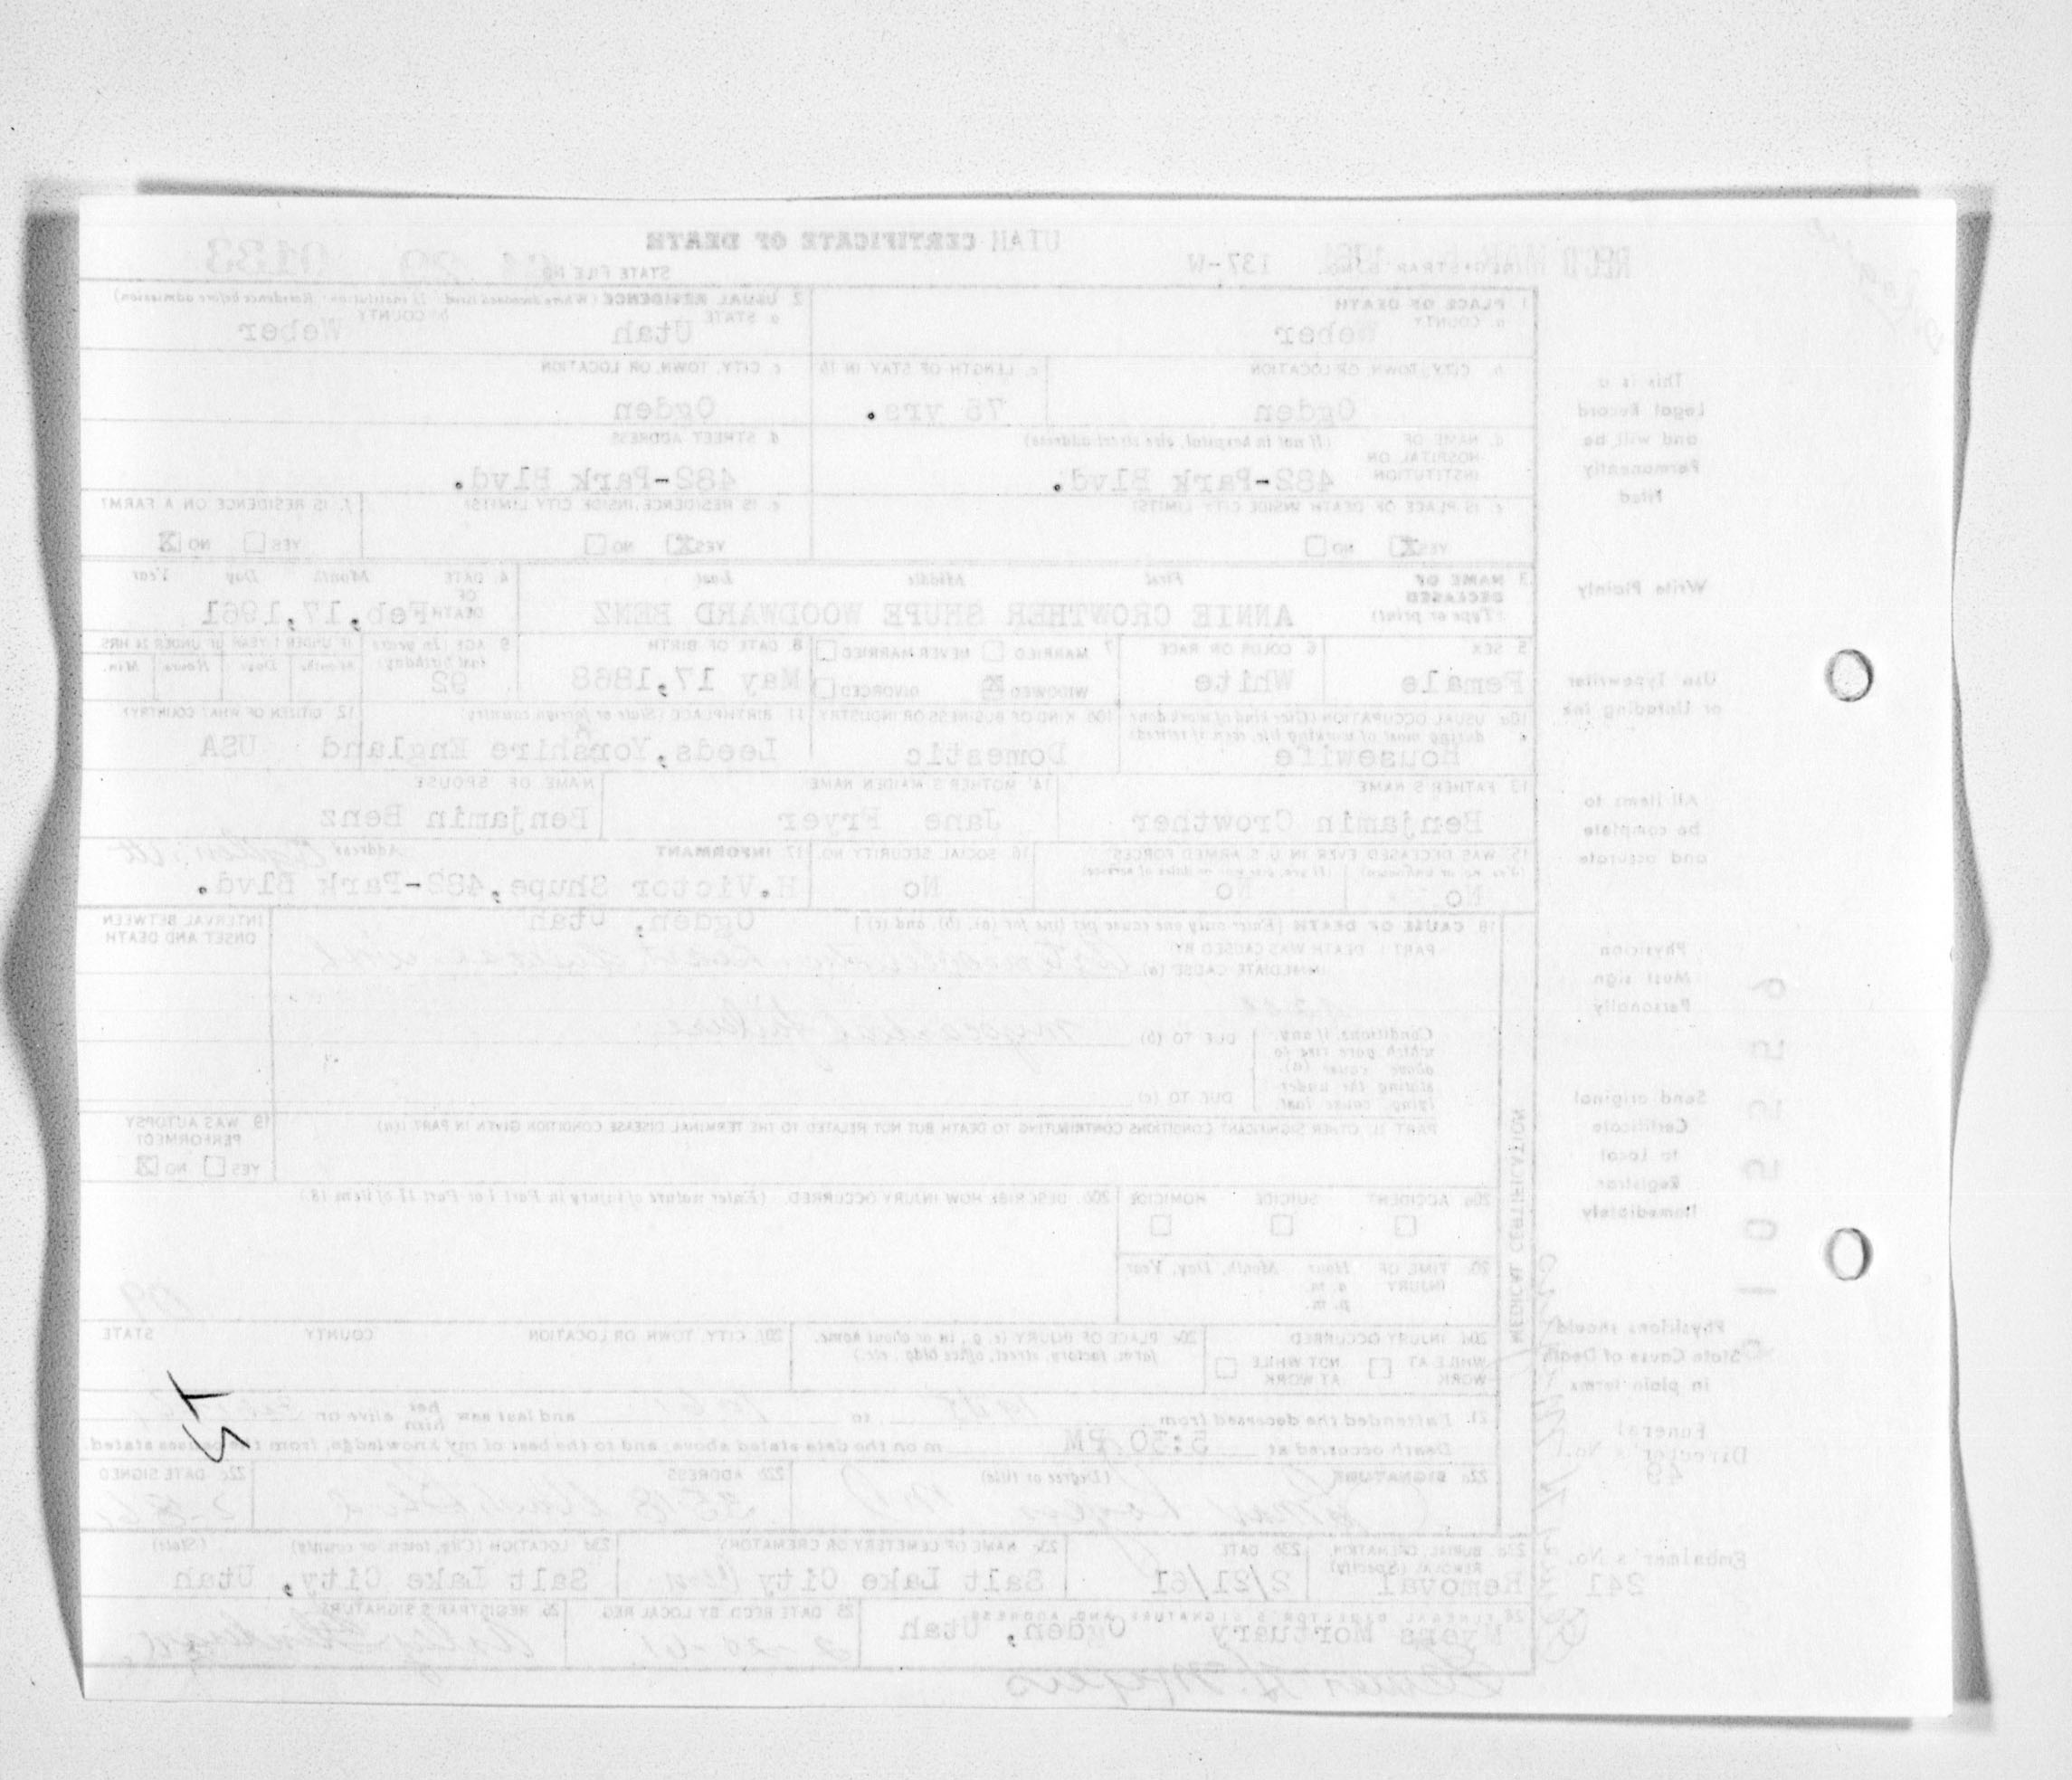 UTAH CERTIFICATE OF DEATH
REC'D MAR
REGISTRAR'S NO. 137-W
STATE FILE NO. 61 29 0133
1. PLACE OF DEATH
a. COUNTY Weber
2. USUAL RESIDENCE (Where deceased lived. If institution: Residence before admission)
a. STATE Utah
b. COUNTY Weber
b. CITY, TOWN, OR LOCATION Ogden
c. LENGTH OF STAY IN 1b 75 yrs.
c. CITY, TOWN, OR LOCATION Ogden
d. NAME OF HOSPITAL OR INSTITUTION (If not in hospital, give street address) 482-Park Blvd.
d. STREET ADDRESS 482-Park Blvd.
e. IS PLACE OF DEATH INSIDE CITY LIMITS? YES NO
e. IS RESIDENCE INSIDE CITY LIMITS? YES NO
f. IS RESIDENCE ON A FARM? YES NO
3. NAME OF DECEASED (Type or print) First Middle Last
ANNIE CROWTHER SHUPE WOODWARD BENZ
4. DATE OF DEATH Month Day Year Feb,17,1961
5. SEX Female
6. COLOR OR RACE White
7. MARRIED NEVER MARRIED WIDOWED DIVORCED
8. DATE OF BIRTH May 17,1868
9. AGE (In years last birthday) 92
IF UNDER 1 YEAR Months Days
IF UNDER 24 HRS Hours Min.
10a. USUAL OCCUPATION (Give kind of work done during most of working life, even if retired) Housewife
10b. KIND OF BUSINESS OR INDUSTRY Domestic
11. BIRTHPLACE (State or foreign country) Leeds,Yorshire England
12. CITIZEN OF WHAT COUNTRY? USA
13. FATHER'S NAME Benjamin Crowther
14. MOTHER'S MAIDEN NAME Jane Fryer
NAME OF SPOUSE Benjamin Benz
15. WAS DECEASED EVER IN U.S. ARMED FORCES? (Yes, no, or unknown) No
(If yes, give war or dates of service) No
16. SOCIAL SECURITY NO. No
17. INFORMANT Address
H.Victor Shupe,482-Park Blvd.
Ogden, Utah
18. CAUSE OF DEATH [Enter only one cause per line for (a), (b), and (c).]
INTERVAL BETWEEN ONSET AND DEATH
PART I. DEATH WAS CAUSED BY:
IMMEDIATE CAUSE (a) heart disease with
Conditions, if any, which gave rise to above cause (a), stating the underlying cause last.
DUE TO (b) myocardial failure
DUE TO (c)
PART II. OTHER SIGNIFICANT CONDITIONS CONTRIBUTING TO DEATH BUT NOT RELATED TO THE TERMINAL DISEASE CONDITION GIVEN IN PART I(a)
19. WAS AUTOPSY PERFORMED? YES NO
20a. ACCIDENT SUICIDE HOMICIDE
20b. DESCRIBE HOW INJURY OCCURRED. (Enter nature of injury in Part I or Part II of item 18.)
20c. TIME OF INJURY Hour Month, Day, Year
a. m.
p. m.
20d. INJURY OCCURRED
WHILE AT WORK NOT WHILE AT WORK
20e. PLACE OF INJURY (e. g., in or about home, farm, factory, street, office bldg., etc.)
20f. CITY, TOWN, OR LOCATION COUNTY STATE
21. I attended the deceased from to and last saw her him alive on
Death occurred at 5:30 PM m on the date stated above; and to the best of my knowledge, from the causes stated.
22a. SIGNATURE (Degree or title)
22b. ADDRESS
22c. DATE SIGNED
23a. BURIAL, CREMATION, REMOVAL (Specify) Removal
23b. DATE 2/21/61
23c. NAME OF CEMETERY OR CREMATORY Salt Lake City
23d. LOCATION (City, town, or county) (State) Salt Lake City, Utah
24. FUNERAL DIRECTOR'S SIGNATURE AND ADDRESS
Myers Mortuary Ogden, Utah
25. DATE REC'D BY LOCAL REG. 2-20-61
26. REGISTRAR'S SIGNATURE
MEDICAL CERTIFICATION
This is a
Legal Record
and will be
Permanently
Filed
Write Plainly
Use Typewriter
or Unfading Ink
All items to
be complete
and accurate
Physician
Must sign
Personally
Send original
Certificate
to Local
Registrar
Immediately
Physicians should
State Cause of Death
in plain terms
Funeral
Director's No.
49
Embalmer's No.
241